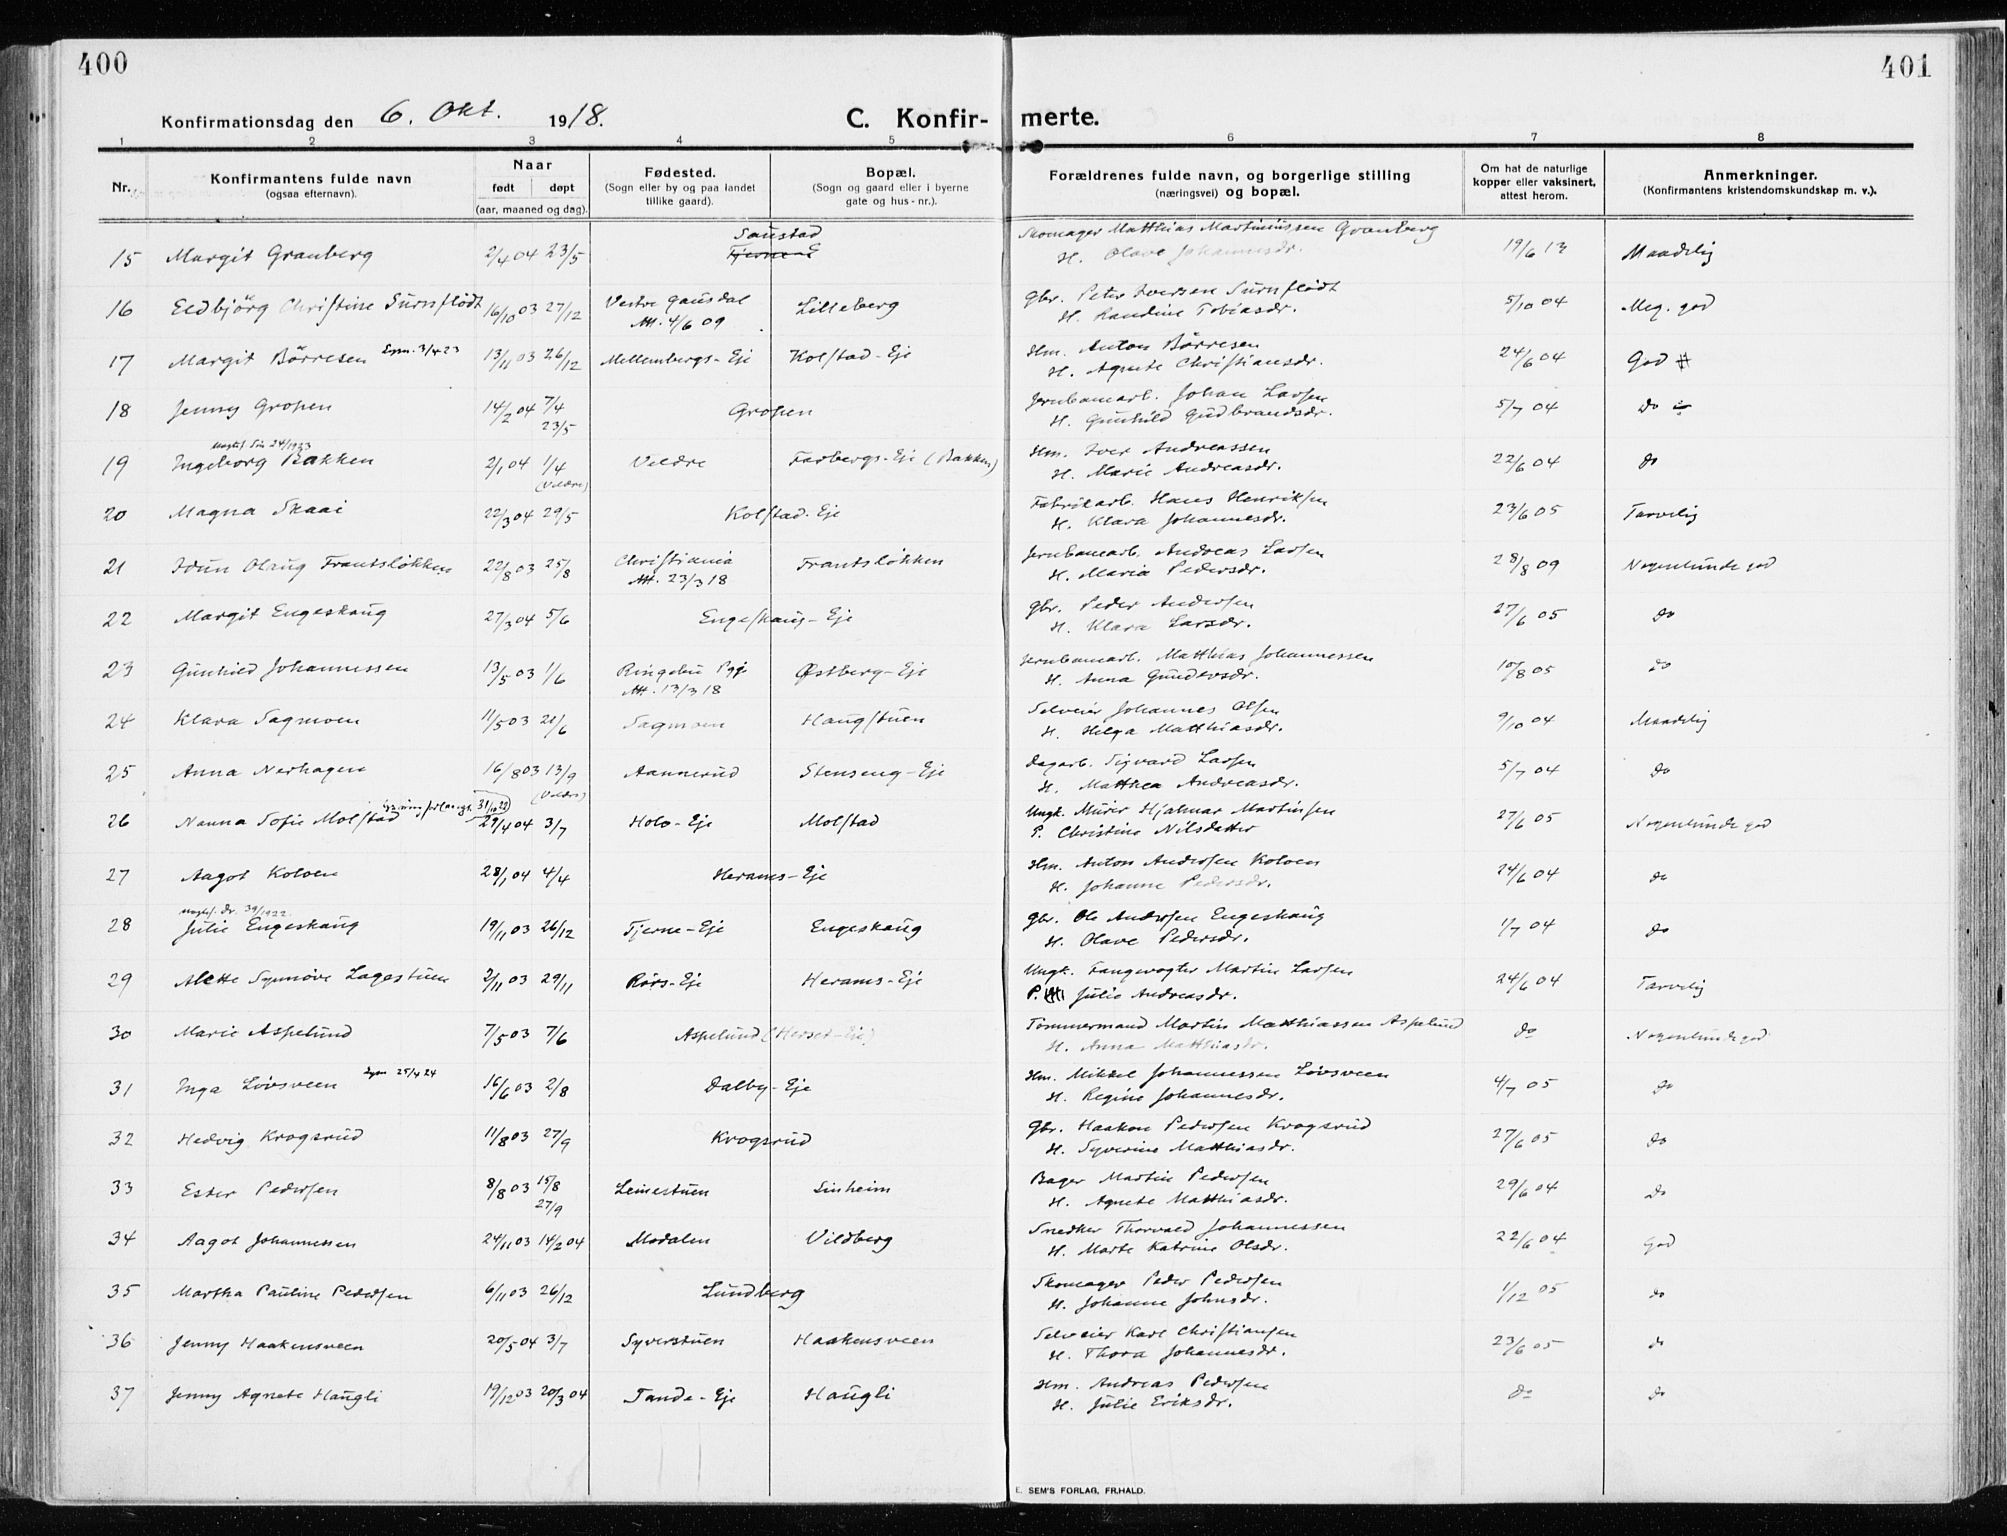 400
401
Konfirmationsdag den 6. Okt. 1918.
C. Konfirmerte.
1 2 3 4 5 6 7 8
Nr. | Konfirmantens fulde navn (ogsaa efternavn). | Naar født døpt (aar, maaned og dag). | Fødested. (Sogn eller by og paa landet tillike gaard). | Bopæl. (Sogn og gaard eller i byerne gate og hus-nr.). | Forældrenes fulde navn, og borgerlige stilling (næringsvei) og bopæl. | Om hat de naturlige kopper eller vaksinert, attest herom. | Anmerkninger. (Konfirmantens kristendomskundskap m. v.).
15 Margit Granberg 2/4 04 23/5 Saustad Skomager Matthias Martiniussen Granberg H. Olave Johannesdr. 19/6 13 Maadelig
16 Eldbjörg Christine Surnflödt 16/10 03 27/12 Vestre Gausdal Att. 4/6 09 Lilleberg Gbr. Peter Iversen Surnflödt H. Randine Tobiasdr. 5/10 04 Meg. god
17 Margit Börresen 3/4 23 13/11 03 26/12 Mellembergs-Eje Kolstad-Eje Hm. Anton Börresen H. Agnete Christiansdr. 24/6 04 God
18 Jenny Gropen 14/2 04 7/4 23/5 Gropen Jernbanearb. Johan Larsen H. Gunhild Gudbrandsdr. 5/7 04 do
19 Ingeborg Bakken 24/1923 2/1 04 1/4 (Veldre) Veldre Farbergs-Eje (Bakken) Hm. Iver Andreassen H. Marie Andreasdr. 22/6 04 do
20 Magna Skaai 22/3 04 29/5 Kolstad-Eje Fabrikarb. Hans Henriksen H. Klara Johannesdr. 23/6 05 Tarvelig
21 Idun Olaug Frantslökken 22/8 03 25/8 Christiania Att. 23/3 18 Frantslökken Jernbanearb. Andreas Larsen H. Maria Pedersdr. 28/8 09 Nogenlunde god
22 Margit Engeskaug 27/3 04 5/6 Engeskaug-Eje Gbr. Peder Andersen H. Klara Larsdr. 27/6 05 do
23 Gunhild Johannessen 13/5 03 1/6 Ringebu Pgj. Att. 13/3 18 Østberg-Eje Jernbanearb. Matthias Johannessen H. Anna Gundersdr. 10/8 05 do
24 Klara Sagmoen 11/5 03 21/6 Sagmoen Haugstuen Selveier Johannes Olsen H. Helga Matthiasdr. 9/10 04 Maadelig
25 Anna Nerhagen 16/8 03 13/9 (Veldre) Aannerud Stenseng-Eje Dagarb. Sigvard Larsen H. Matthea Andreasdr. 5/7 04 do
26 Nanna Sofie Molstad 31/10 22 29/4 04 3/7 Holo-Eje Molstad Ungk. Murer Hjalmar Martinsen P. Christine Nilsdatter 27/6 05 Nogenlunde god
27 Aagot Koloen 28/1 04 4/4 Herams-Eje Hm. Anton Andersen Koloen H. Johanne Pedersdr. 24/6 04 do
28 Julie Engeskaug 39/1922. 19/11 03 26/12 Tjerne-Eje Engeskaug Gbr. Ole Andersen Engeskaug H. Olave Pedersdr. 1/7 04 do
29 Alette Synnöve Lagestuen 2/11 03 29/11 Rörs-Eje Herams-Eje Ungk. Fangevogter Martin Larsen P. Julie Andreasdr. 24/6 04 Tarvelig
30 Marie Aspelund 7/5 03 7/6 Aspelund (Herset-Eje) Tömmermand Martin Matthiassen Aspelund H. Anna Matthiasdr. do Nogenlunde god
31 Inga Lövsveen 25/4 24 16/6 03 2/8 Dalby-Eje Hm. Mikkel Johannessen Lövsveen H. Regine Johannesdr. 4/7 05 do
32 Hedvig Krogsrud 11/8 03 27/9 Krogsrud Gbr. Haakon Pedersen Krogsrud H. Syverine Matthiasdr. 27/6 05 do
33 Ester Pedersen 8/8 03 15/8 27/9 Leinestuen Linheim Bager Martin Pedersen H. Agnete Matthiasdr. 29/6 04 do
34 Aagot Johannessen 24/11 03 14/2 04 Modalen Vildberg Snedker Thorvald Johannessen H. Marte Katrine Olsdr. 22/6 04 God
35 Martha Pauline Pedersen 6/11 03 26/12 Lundberg Skomager Peder Pedersen H. Johanne Johnsdr. 1/12 05 do
36 Jenny Haakensveen 20/5 04 3/7 Syverstuen Haakensveen Selveier Karl Christiansen H. Thora Johannesdr. 23/6 05 do
37 Jenny Agnete Haugli 19/12 03 20/3 04 Tande-Eje Haugli Hm. Andreas Pedersen H. Julie Eriksdr. do do
E. SEM'S FORLAG, FR.HALD.